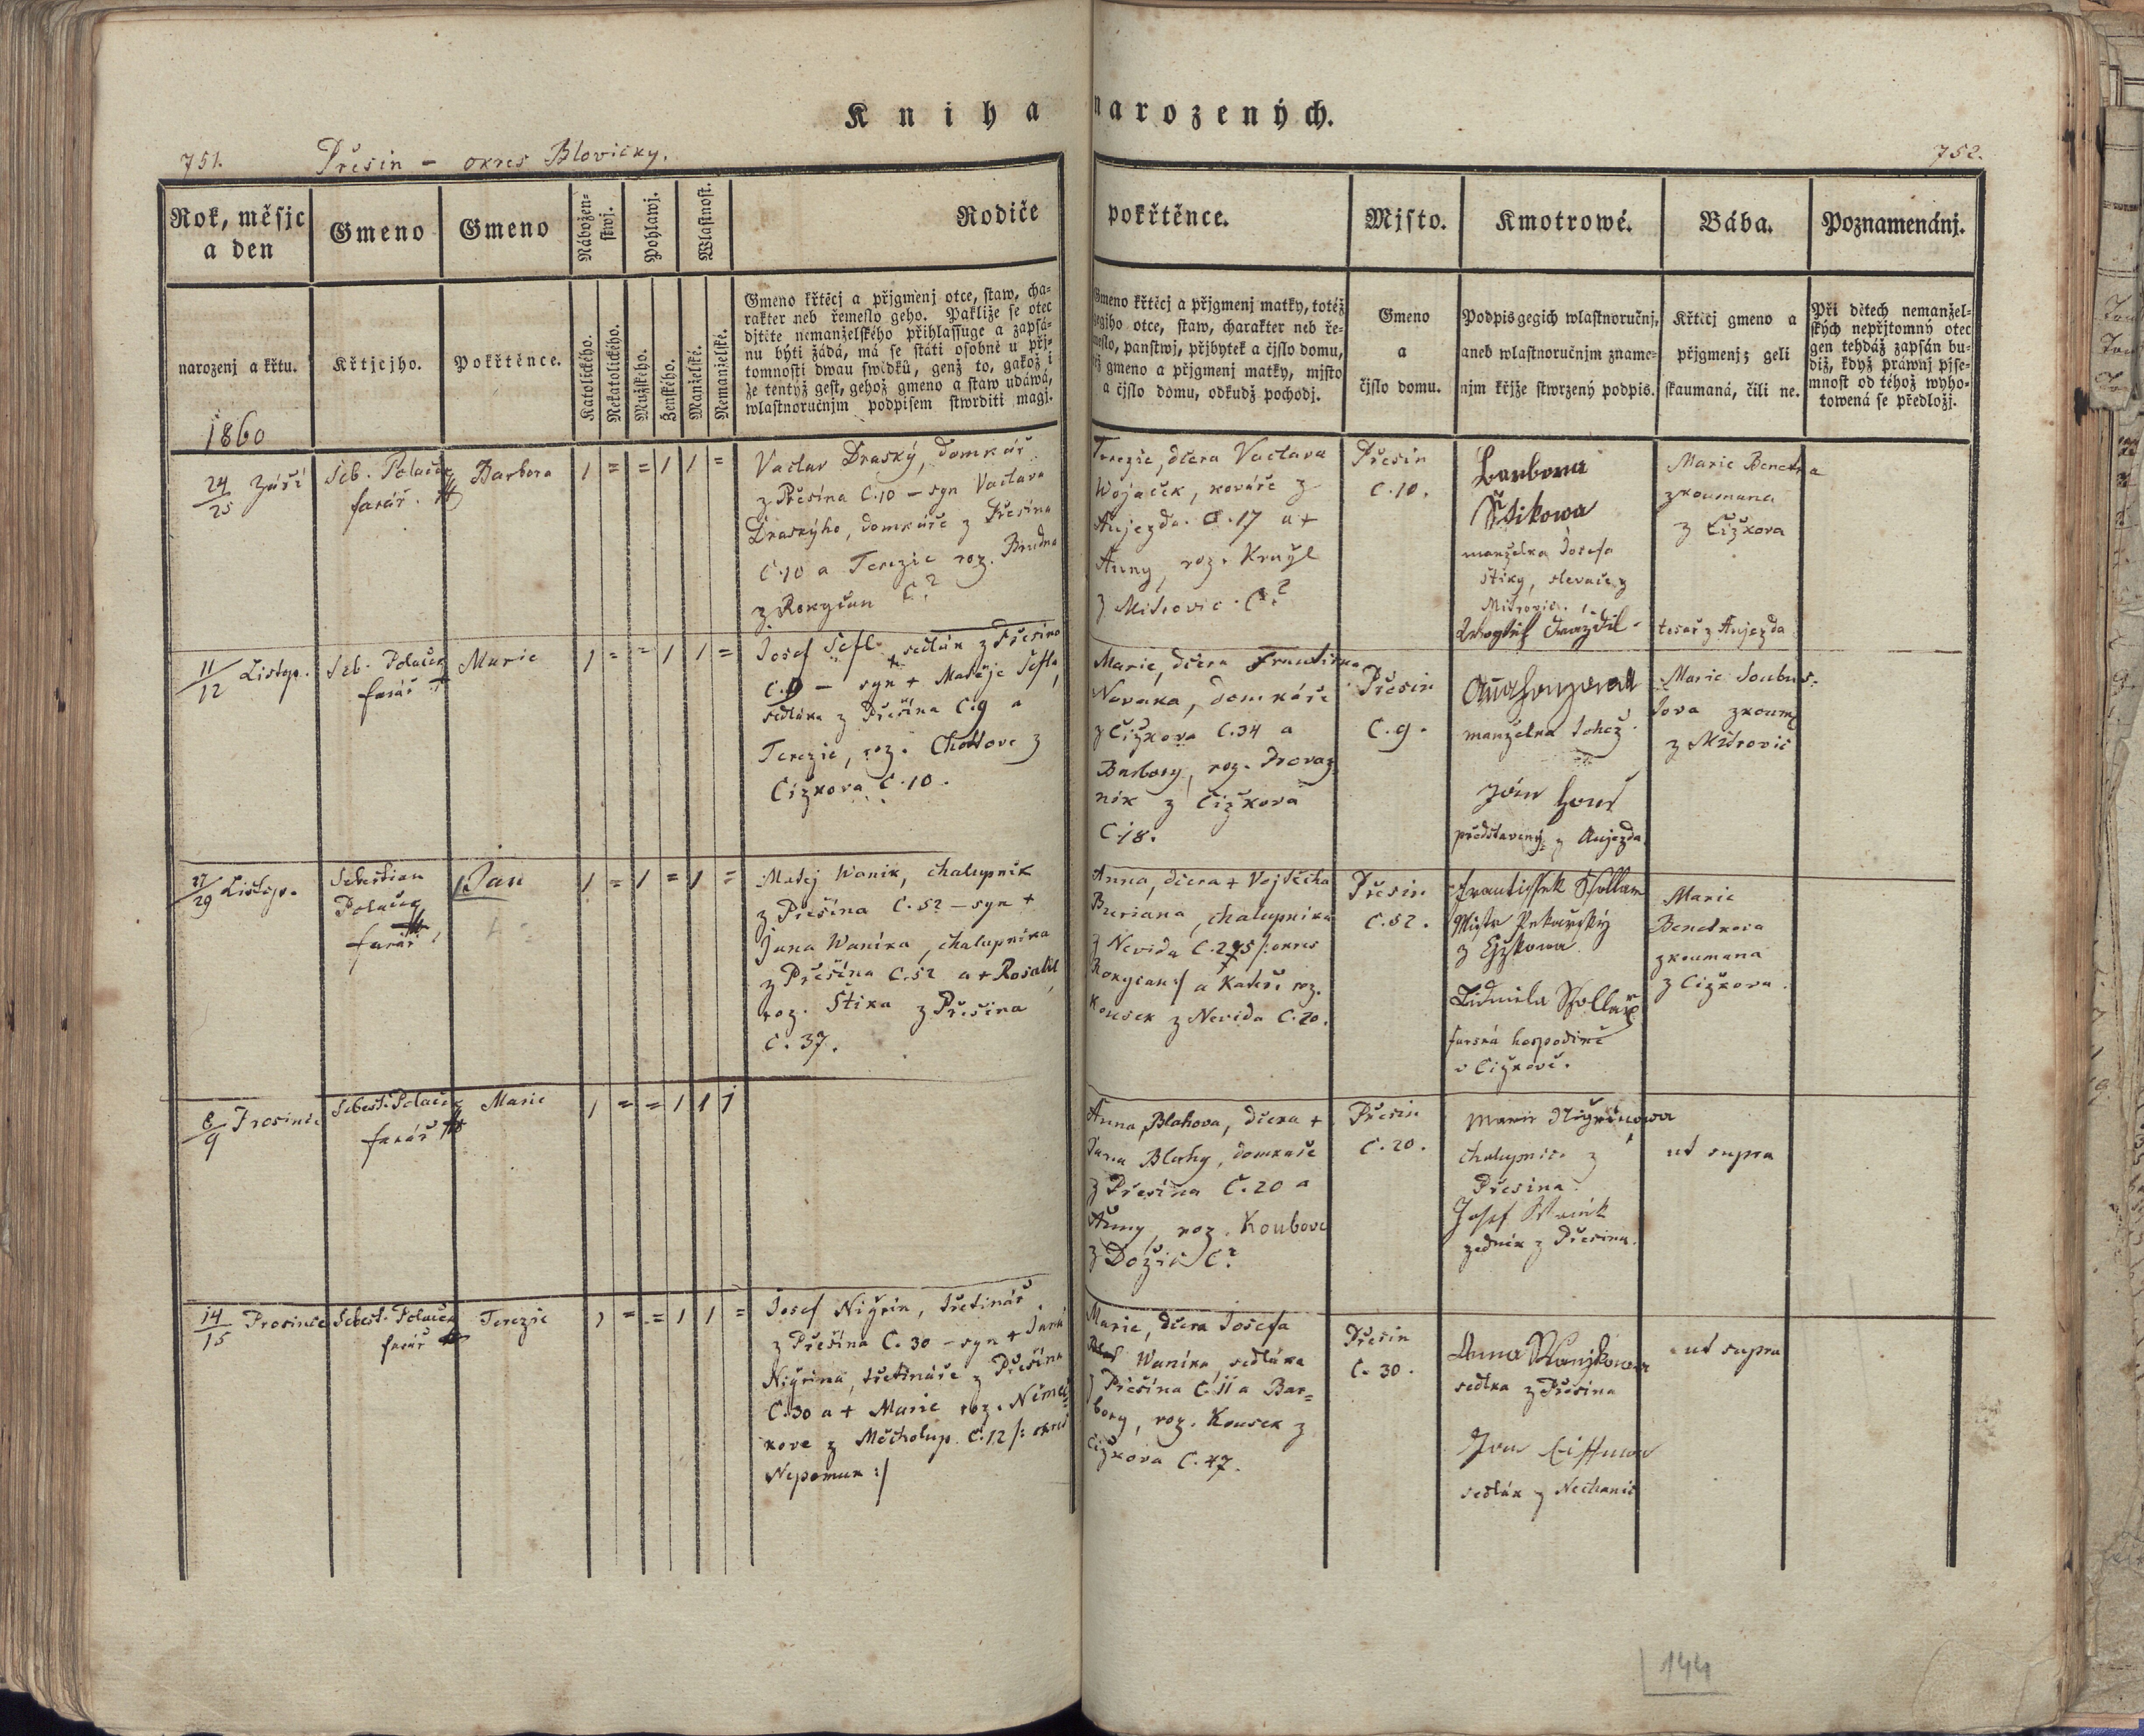 Kniha narozených.
751.
Přesin - okres Blovičky.
752.
Rok, měsjc
a den
Gmeno
Gmeno
Nábožen-
stwj.
Pohlawj.
Wlastnost.
Rodiče
pokřtěnce.
Mjsto.
Kmotrowé.
Bába.
Poznamenánj.
narozenj a křtu.
Křtjcjho.
Pokřtěnce.
Katolického.
Nekatolického.
Mužského.
Ženského.
Manželské.
Nemanželské.
Gmeno křtěcj a přjgmenj otce, staw, cha-
rakter neb řemeslo geho. Pakliže se otec
djtěte nemanželského přihlassuge a zapsá-
nu býti žádá, má se státi osobně u přj-
tomnosti dwau swědků, genž to, gakož i
že tentýž gest, gehož gmeno a staw udáwá,
wlastnoručnjm podpisem stwrditi magj.
Gmeno křtěcj a přjgmenj matky, totéž
gegjho otce, staw, charakter neb ře-
meslo, panstwj, přjbytek a čjslo domu,
též gmeno a přjgmenj matky, mjsto
a čjslo domu, odkudž pocházj.
Gmeno
a
čjslo domu.
Podpis gegich wlastnoručnj,
aneb wlastnoručnjm zname-
njm křjže stwrzený podpis.
Křtěcj gmeno a
přjgmenj; geli
skaumaná, čili ne.
Při dětech nemanžel-
ských nepřjtomný otec
gen tehdáž zapsán bu-
diž, když práwnj pjse-
mnost od téhož wyho-
towená se předložj.
1860
24/25 Září
Seb. Polaček
farář.
Barbora
1 = = 1 1 =
Vaclav Draský, domkář
z Přesína C.10 - syn Vaclava
Draskýho, domkáře z Přesína
C.10 a Terezie roz. Brudna
z Rokyčan C?
Terezie, dčera Vaclava
Wojaček, kováře z
Aujezda C.17 a +
Anny, roz. Krayl
z Mitrovic C?
Přesin
C.10.
Barbora
Štikowa
manželka Josefa
Štiky, slevače z
Mitrovic.
tesař z Aujezda
Marie Benetka
zkoumana
z Čižkova
11/12 Listop.
Seb. Polaček
farář
Marie
1 = = 1 1 =
Josef Šefl + sedlák z Přesina
C.9 - syn + Matěje Šefla,
sedláka z Přešína C.9 a
Terezie, roz. Chottove z
Čížkova C.10.
Marie, dčera Františka
Novaka, domkáře
z Čižkova C.34 a
Barbory, roz. Provaz-
nik z Čižkova
C.18.
Přesin
C.9.
manželka tohož
Ján Hous
představený z Aujezda
Marie Soubus-
tova zkoum.
z Mitrovic
27/29 Listop.
Sebestian
Polaček
farář
Jan
1 = 1 = 1 =
Matěj Wanik, chalupník
z Přešína C.52 - syn +
Jana Waníka, chalupníka
z Přešína C.52 a + Rosalie,
roz. Štika z Přešina
C. 37.
Anna, dčera + Vojtěcha
Buriana, chalupníka
z Nevida /:okres
Rokycan:/ a Kateři roz.
Kousek z Nevida C.20.
Přesin
C.52.
Frantissek Skollar
Mistr Pekařský
z Čyžkowa
Lidmila Skollař
farská hospodině
v Čižkově.
Marie
Benetkova
zkoumana
z Čižkova.
8/9 Prosinec
Sebest. Polaček
farář
Marie
1 = = 1 1 1
Anna Blahova, dčera +
Jana Blahy, domkaře
z Přesína C.20 a
Anny, roz. Koubove
z Dožic C?
Přesin
C.20.
Marie Nigrinowa
chalupnice z
Přesina.
Josef Waník
zedník z Přesina.
ut supra
14/15 Prosinec
Sebest. Polaček
farář
Terezie
1 = = 1 1 =
Josef Nigrin, třetinář
z Přešína C.30 - syn + Jana
Nigrina, třetináře z Přesína
C.30 a + Marie roz. Němeč-
kove z Měcholup C.12 /: okres
Nepomuk :/
Marie, dčera Josefa
Waníka, sedláka
z Přešína C.11 a Bar-
bory, roz. Kousek z
Čižkova C.47.
Přesin
C. 30.
Anna Wanjkowa
sedlka z Přesina
Jan
sedlák z Nechanic
ut supra
144